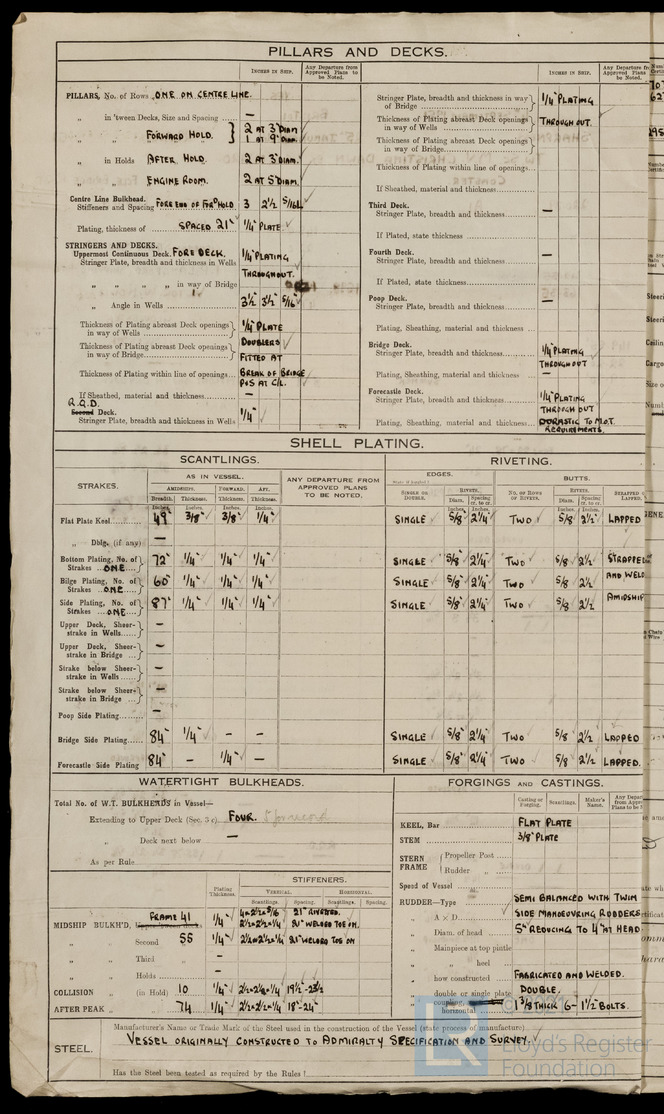 PILLARS AND DECKS.
INCHES IN SHIP.
Any Departure from Approved Plans to be Noted.
INCHES IN SHIP.
PILLARS, No. of Rows ONE ON CENTRE LINE.
„ in 'tween Decks, Size and Spacing —
„ „ FORWARD HOLD. } 2 AT 3" DIAM
1 AT 9" DIAM.
„ in Holds AFTER HOLD. 2 AT 3" DIAM.
„ „ ENGINE ROOM. 2 AT 5" DIAM.
Centre Line Bulkhead.
Stiffeners and Spacing FORE END OF FOR'D HOLD 3 2½ 5/16
Plating, thickness of SPACED 21" ¼" PLATE
STRINGERS AND DECKS.
Uppermost Continuous Deck. FORE DECK. ¼" PLATING
Stringer Plate, breadth and thickness in Wells THROUGHOUT.
„ „ „ „ in way of Bridge
„ Angle in Wells 3½" 3½" 5/16"
Thickness of Plating abreast Deck openings in way of Wells ¼" PLATE
Thickness of Plating abreast Deck openings in way of Bridge DOUBLERS FITTED AT
Thickness of Plating within line of openings BREAK OF BRIDGE P&S AT C/L.
If Sheathed, material and thickness —
R.Q.D.
Second Deck.
Stringer Plate, breadth and thickness in Wells ¼"
Stringer Plate, breadth and thickness in way of Bridge ¼" PLATING
Thickness of Plating abreast Deck openings in way of Wells THROUGHOUT.
Thickness of Plating abreast Deck openings in way of Bridge
Thickness of Plating within line of openings
If Sheathed, material and thickness
Third Deck.
Stringer Plate, breadth and thickness —
If Plated, state thickness
Fourth Deck.
Stringer Plate, breadth and thickness —
If Plated, state thickness
Poop Deck.
Stringer Plate, breadth and thickness —
Plating, Sheathing, material and thickness
Bridge Deck.
Stringer Plate, breadth and thickness ¼" PLATING THROUGHOUT
Plating, Sheathing, material and thickness —
Forecastle Deck.
Stringer Plate, breadth and thickness ¼" PLATING THROUGHOUT
Plating, Sheathing, material and thickness DURASTIC TO M.O.T. REQUIREMENTS.
SHELL PLATING.
SCANTLINGS.
RIVETING.
STRAKES.
AS IN VESSEL.
ANY DEPARTURE FROM APPROVED PLANS TO BE NOTED.
EDGES.
BUTTS.
AMIDSHIPS. FORWARD. AFT.
Breadth. Thickness. Thickness. Thickness.
SINGLE OR DOUBLE.
RIVETS.
Diam. Spacing cr. to cr.
NO. OR ROWS OF RIVETS.
RIVETS.
Diam. Spacing cr. to cr.
STRAPPED OR LAPPED.
Flat Plate Keel 49" 3/8" 3/8" ¼" SINGLE 5/8" 2¼" TWO 5/8 2½" LAPPED
„ Dblg. (if any) —
Bottom Plating, No. of Strakes ONE 72" ¼" ¼" ¼" SINGLE 5/8" 2¼" TWO 5/8 2½" STRAPPED
Bilge Plating, No. of Strakes ONE 60" ¼" ¼" ¼" SINGLE 5/8" 2¼" TWO 5/8 2½ AND WELD
Side Plating, No. of Strakes ONE 87" ¼" ¼" ¼" SINGLE 5/8" 2¼" TWO 5/8 2½ AMIDSHIP
Upper Deck, Sheerstrake in Wells —
Upper Deck, Sheerstrake in Bridge —
Strake below Sheerstrake in Wells —
Strake below Sheerstrake in Bridge —
Poop Side Plating —
Bridge Side Plating 84" ¼" — — SINGLE 5/8" 2¼" TWO 5/8 2½ LAPPED
Forecastle Side Plating 84" — ¼" — SINGLE 5/8" 2¼" TWO 5/8 2½ LAPPED.
WATERTIGHT BULKHEADS.
Total No. of W.T. BULKHEADS in Vessel—
Extending to Upper Deck (Sec. 3 c) FOUR.
„ Deck next below —
As per Rule
Plating Thickness.
STIFFENERS.
VERTICAL. HORIZONTAL.
Scantlings. Spacing. Scantlings. Spacing.
MIDSHIP BULKH'D, FRAME 41 ¼" 4×2½×5/16 21" RIVETED.
2½×2½×¼ 21" WELDED TOE ON.
„ Second 55 ¼" 2½×2½×¼ 21" WELDED TOE ON
„ Third —
„ Holds —
COLLISION „ (in Hold) 10 ¼" 2½×2½×¼ 19½-23½
AFTER PEAK „ 74 ¼" 2½×2½×¼ 18"-24"
FORGINGS AND CASTINGS.
Casting or Forging. Scantlings. Maker's Name.
KEEL, Bar FLAT PLATE
STEM 3/8" PLATE
STERN FRAME { Propeller Post
Rudder „
Speed of Vessel
RUDDER—Type SEMI BALANCED WITH TWIN
„ A × D SIDE MANOEUVRING RUDDERS
„ Diam. of head 5" REDUCING TO 4" AT HEAD
„ Mainpiece at top pintle
„ „ heel
„ how constructed FABRICATED AND WELDED.
„ double or single plate DOUBLE.
„ coupling, horizontal 1 3/8 THICK 6-1½" BOLTS.
STEEL.
Manufacturer's Name or Trade Mark of the Steel used in the construction of the Vessel (state process of manufacture)
VESSEL ORIGINALLY CONSTRUCTED TO ADMIRALTY SPECIFICATION AND SURVEY.
Has the Steel been tested as required by the Rules?
LR
Lloyd's Register
Foundation